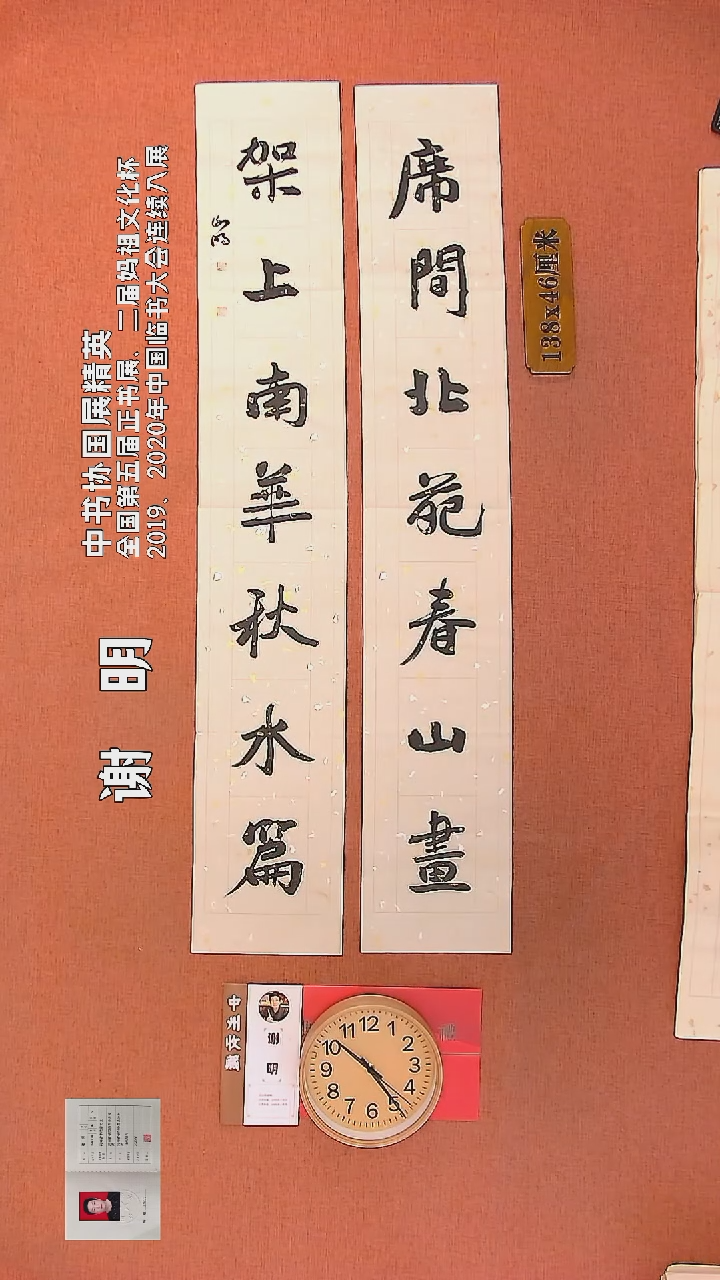 席間北苑春山畫
架上南華秋水篇
138x46厘米
中书协国展精英
全国第五届正书展、二届妈祖文化杯
2019、2020年中国临书大会连续入展
谢 明
12
1
2
3
4
5
6
7
8
9
10
11